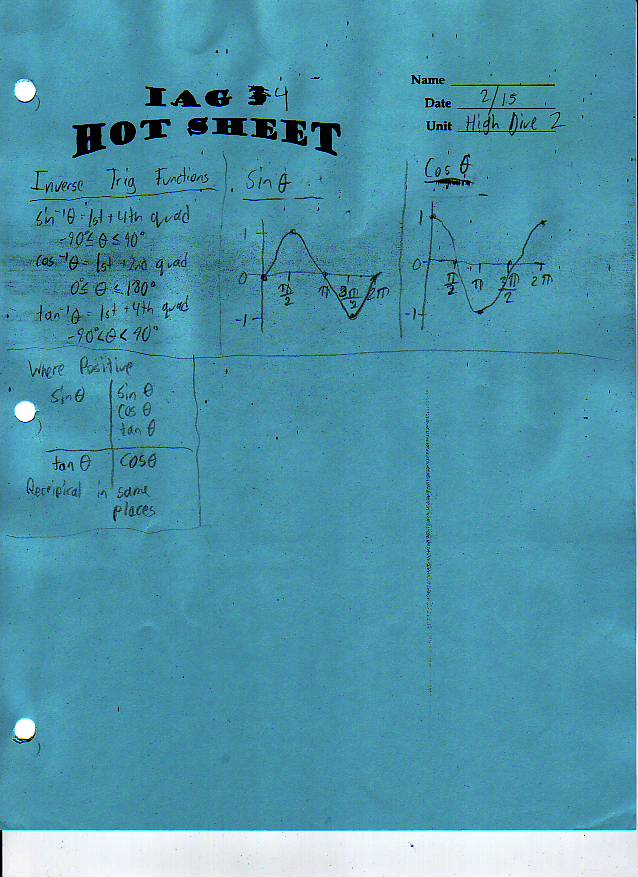 IAG 3 4
HOT SHEET
Name
Date 2/15
Unit High Dive 2
Inverse Trig Functions
sin⁻¹θ = 1st + 4th quad
-90° ≤ θ ≤ 90°
cos⁻¹θ = 1st + 2nd quad
0° ≤ θ ≤ 180°
tan⁻¹θ = 1st + 4th quad
-90° < θ < 90°
Sin θ
1
0
π/2 π 3π/2 2π
-1
Cos θ
1
0
π/2 π 3π/2 2π
-1
Where Positive
sin θ
sin θ
cos θ
tan θ
tan θ
cos θ
in same
places